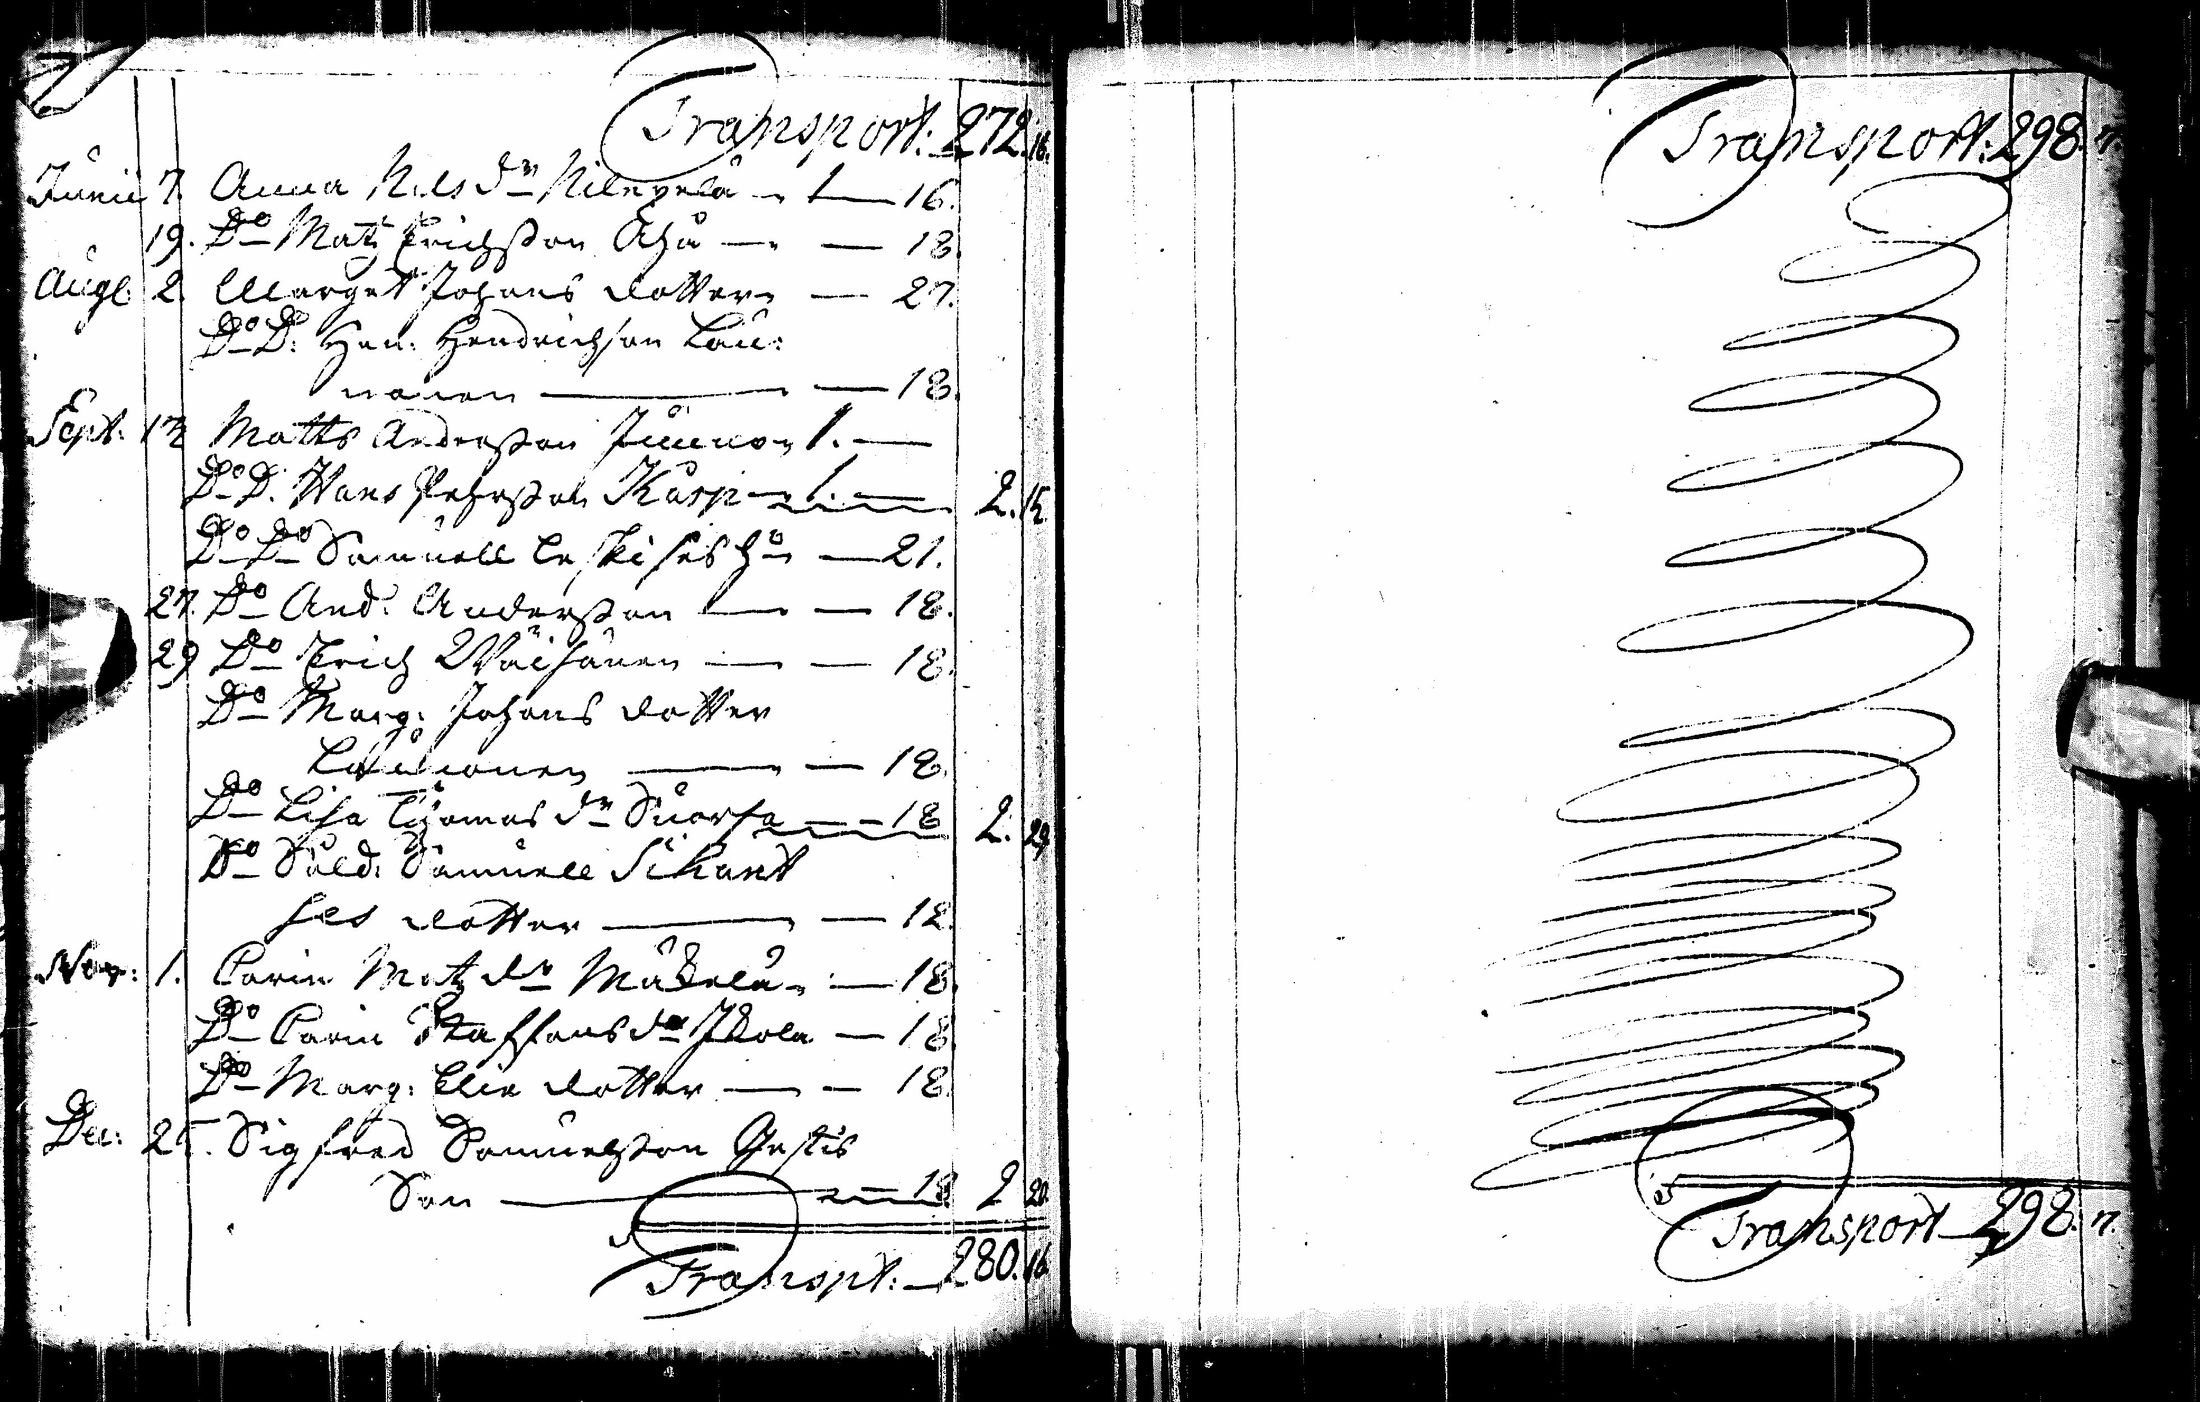 Transport: 272. 16.
Junii 7. Anna Nils dr Nilepelä 1 — 16.
19. Do Matz Erichsson Ahå — 18.
Augt. 2. Marget Johans dotter — 27.
Do D: Hen: Hendrichson Lau:
nonen — 18.
Sept: 12 Matts Andersson Junno 1. —
Do D. Hans Pehrsson Karp 1. — 2. 15.
Do Do Samuell Leskises hu — 21.
27. Do And: Andersson — 18.
29 Do Erich Wäisänen — 18.
Do Marg: Johans dotter
— 18.
Do Lisa Thomas dr Suorsa — 18 2. 29
Do Sold: Samuell Sikant
ses dotter — 12.
Nov: 1. Carin Matz dr Mäkelä — 18.
Do Carin Staffans dr Ikola — 18
Do Marg: Elie dotter — 18
Dec: 25. Sigfred Samuelsson
Son — 18 2 20.
Transpt: 280. 16.
Transport: 298. 7.
Transport 298. 7.